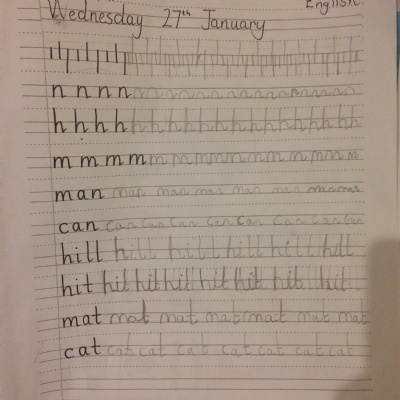 English
Wednesday 27th January
n n n n
h h h h
m m m m
man man man man man man man man
can can can can can can can can can
hill hill hill hill hill hill
hit hit hit hit hit hit hit hit
mat mat mat mat mat mat mat
cat cat cat cat cat cat cat cat